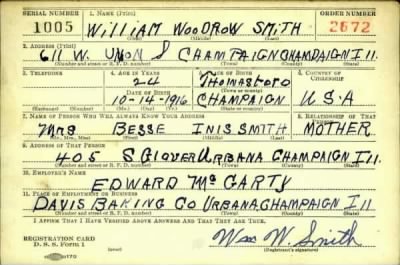 SERIAL NUMBER 1. NAME (Print) ORDER NUMBER
1005 WILLIAM WOODROW SMITH 2672
(First) (Middle) (Last)
2. ADDRESS (Print)
611 W. UNON S CHAMPAIGN CHAMPAIGN Ill.
(Number and street or R. F. D. number) (Town) (County) (State)
3. TELEPHONE 4. AGE IN YEARS 5. PLACE OF BIRTH 6. COUNTRY OF CITIZENSHIP
24 Thomasboro
(Town or county)
DATE OF BIRTH
10-14-1916 CHAMPAIGN U.S.A
(Exchange) (Number) (Mo.) (Day) (Yr.) (State or country)
7. NAME OF PERSON WHO WILL ALWAYS KNOW YOUR ADDRESS 8. RELATIONSHIP OF THAT PERSON
Mrs BESSE INIS SMITH MOTHER
(Mr., Mrs., Miss) (First) (Middle) (Last)
9. ADDRESS OF THAT PERSON
405 S Glover Urbana CHAMPAIGN Ill.
(Number and street or R. F. D. number) (Town) (County) (State)
10. EMPLOYER'S NAME
EDWARD McGARTY
11. PLACE OF EMPLOYMENT OR BUSINESS
DAVIS BAKING CO URBANA CHAMPAIGN Ill
(Number and street or R. F. D. number) (Town) (County) (State)
I AFFIRM THAT I HAVE VERIFIED ABOVE ANSWERS AND THAT THEY ARE TRUE.
REGISTRATION CARD
D. S. S. Form 1 Wm W. Smith
(Registrant's signature)